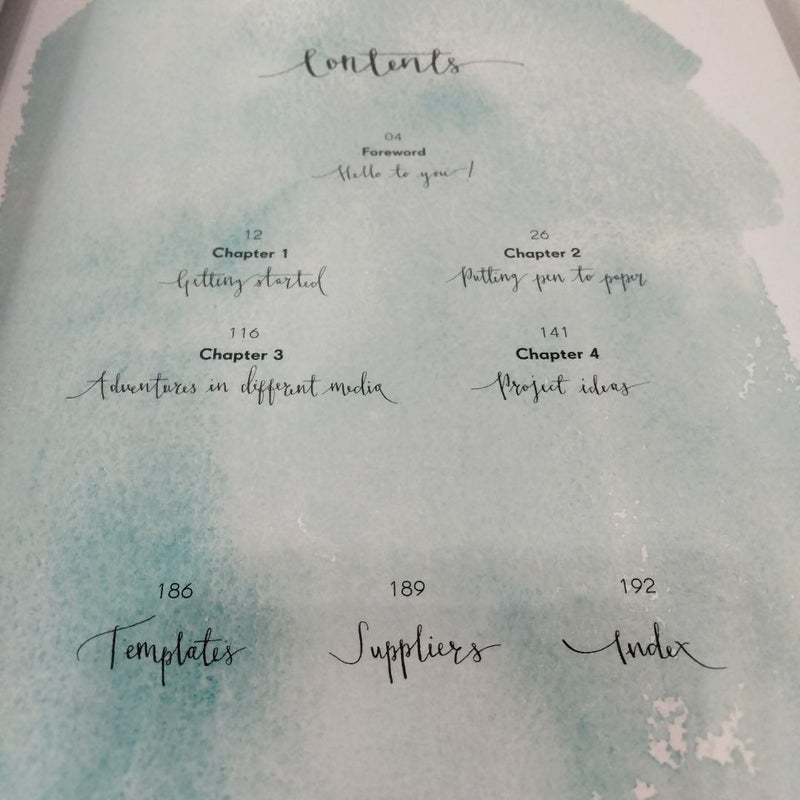 Contents
04
Foreword
Hello to you!
12
Chapter 1
Getting started
26
Chapter 2
Putting pen to paper
116
Chapter 3
Adventures in different media
141
Chapter 4
Project ideas
186
Templates
189
Suppliers
192
Index